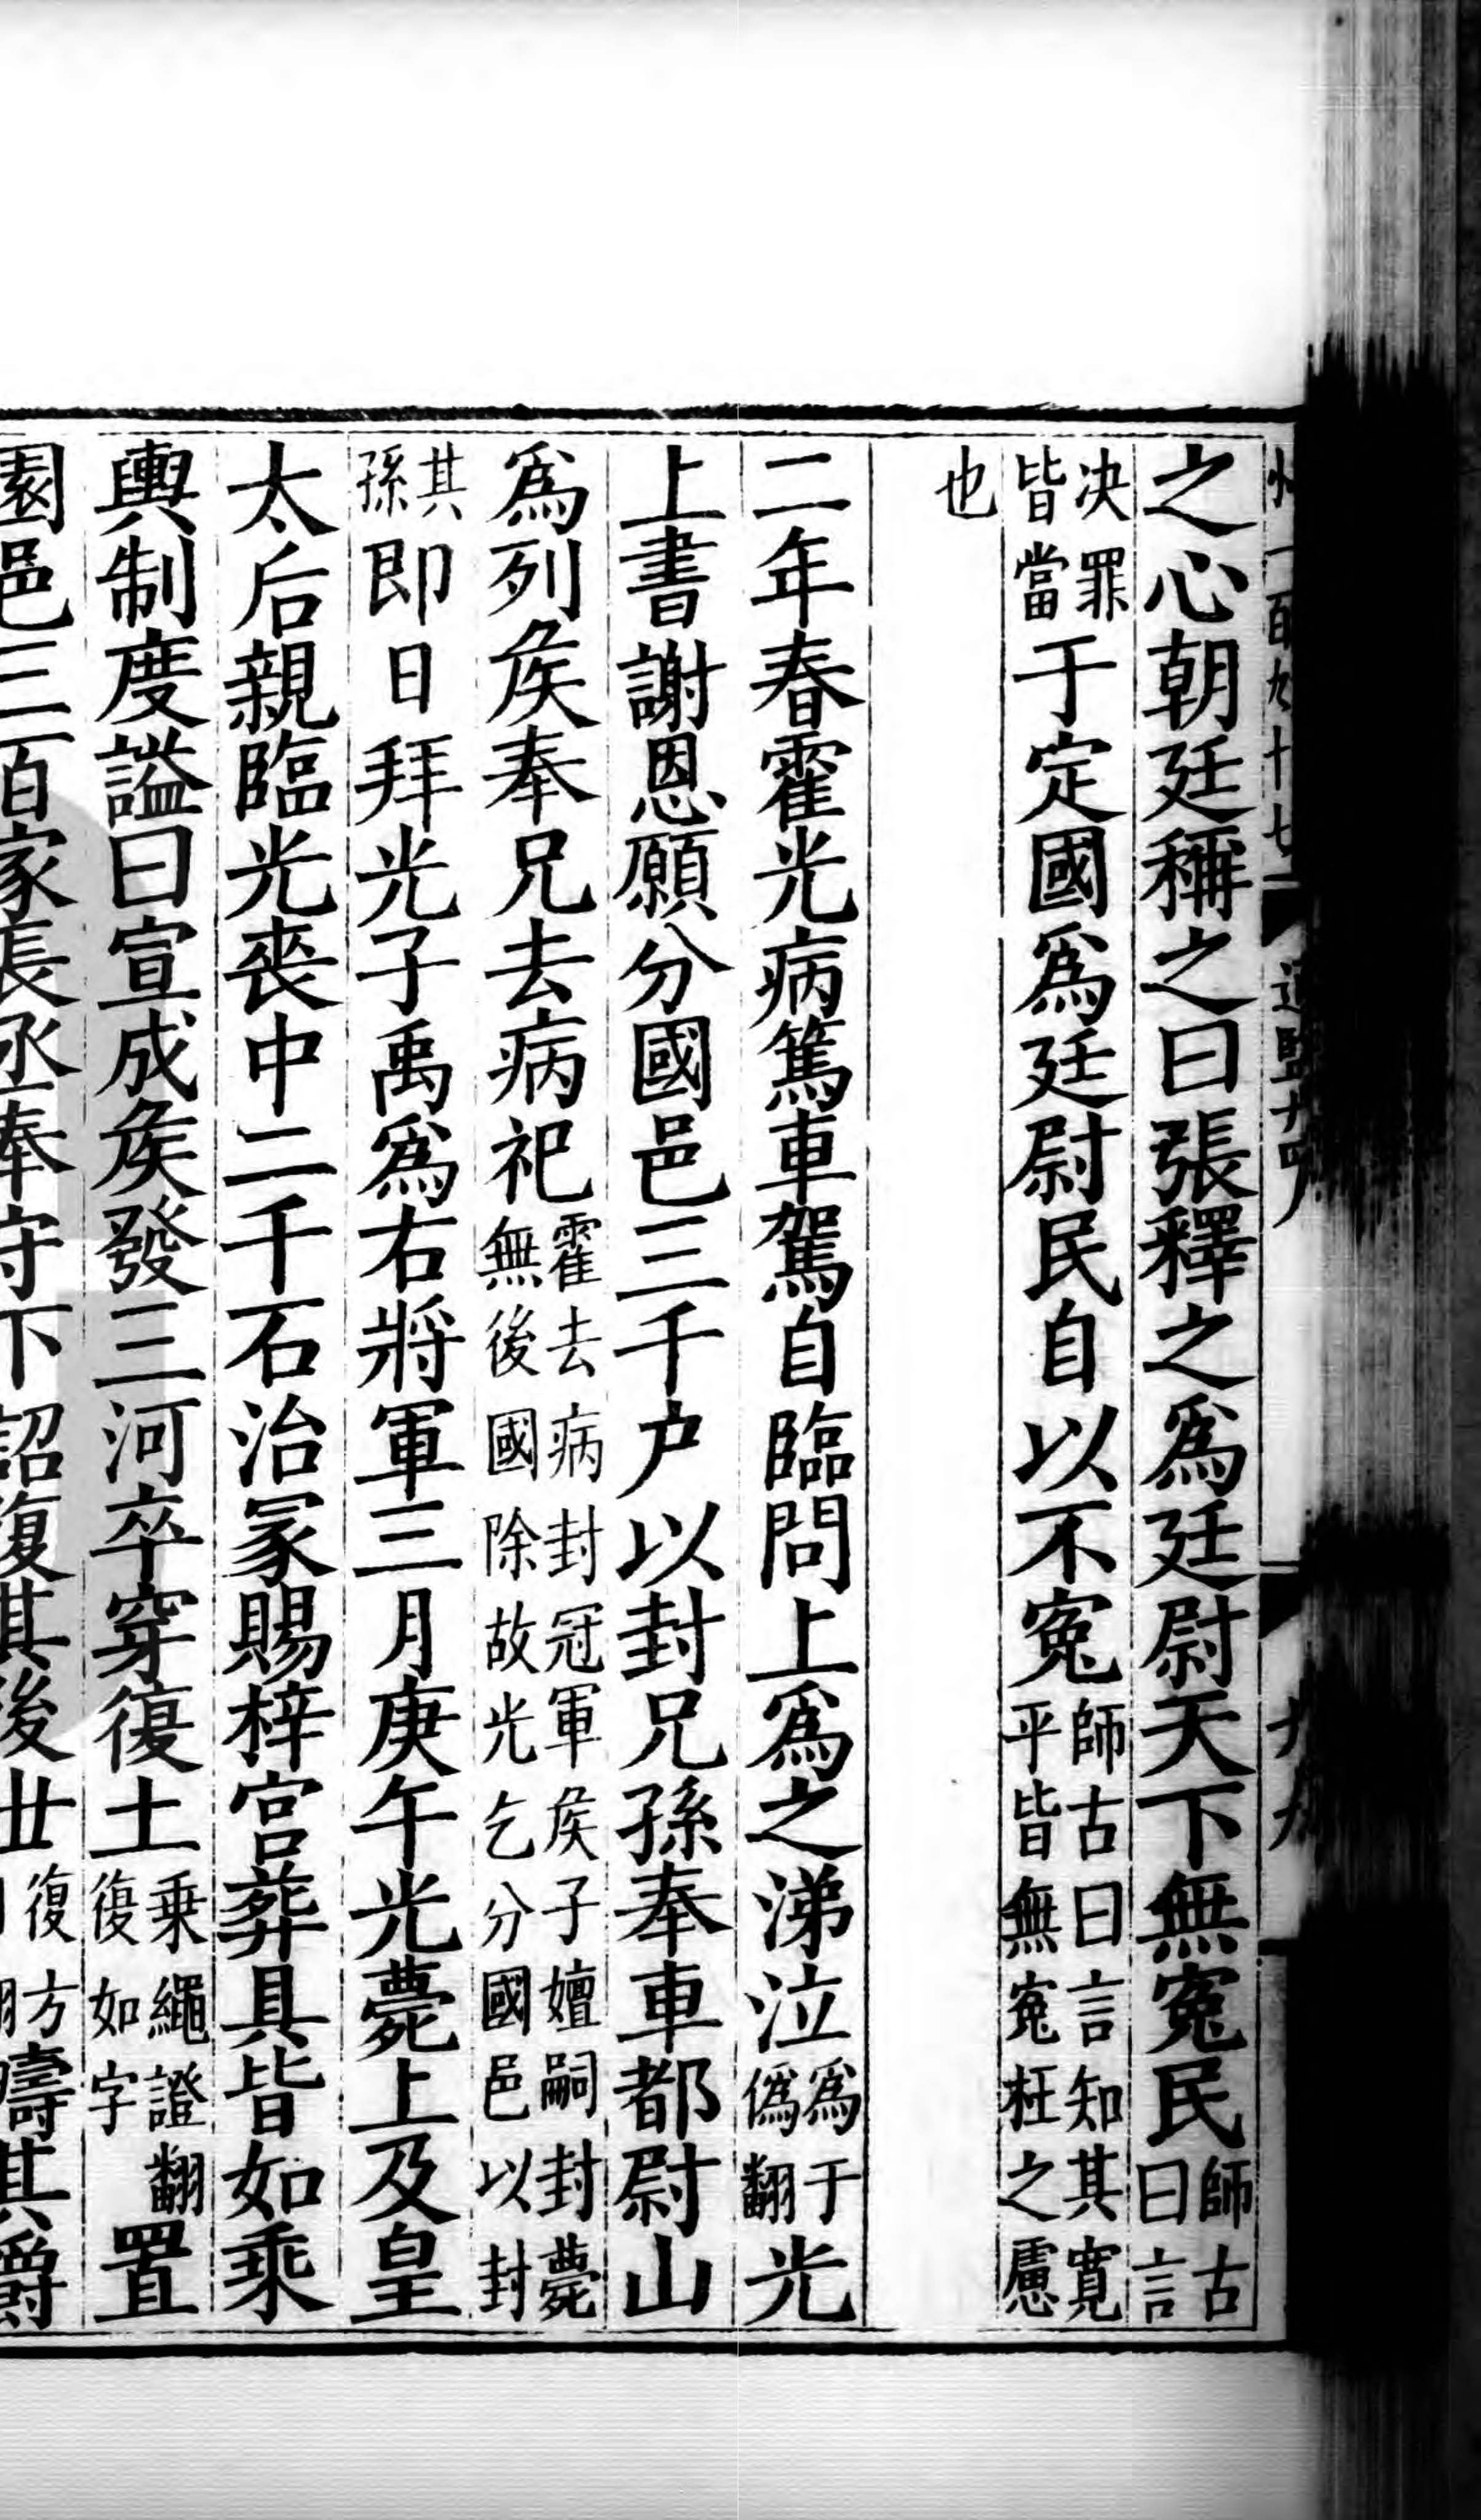 一百九十七
之心朝廷稱之曰張釋之爲廷尉天下無冤民師古曰言
决罪皆當于定國爲廷尉民自以不冤師古曰言知其寛平皆無冤枉之慮
也
二年春霍光病篤車駕自臨問上爲之涕泣爲于僞翻光
上書謝恩願分國邑三千户以封兄孫奉車都尉山
爲列矦奉兄去病祀霍去病封冠軍矦子嬗嗣封薨無後國除故光乞分國邑以封
其孫即日拜光子禹爲右將軍三月庚午光薨上及皇
太后親臨光喪中二千石治冢賜梓宫葬具皆如乘
輿制度謚曰宣成矦發三河卒穿復土乗繩證翻復如字置
園邑三百家長丞奉守下詔復其後世復方翻疇其爵